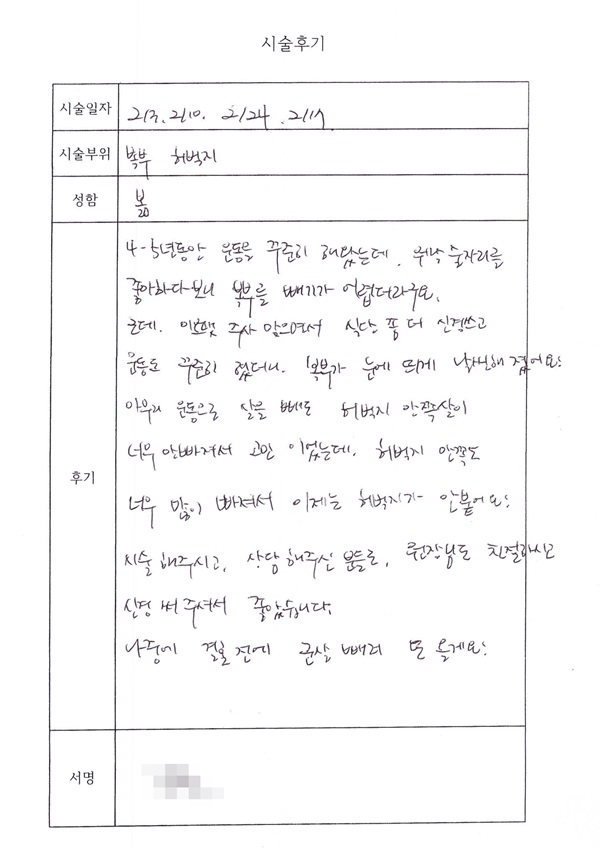 시술후기
시술일자 2/3. 2/10. 2/24. 2/17.
시술부위 복부 허벅지
성함
4-5년동안 운동을 꾸준히 해왔는데, 워낙 술자리를
좋아하다보니 복부를 빼기가 어렵더라구요.
근데, 주사 맞으면서 식단 좀 더 신경쓰고
운동도 꾸준히 했더니, 복부가 눈에 띄게 날씬해졌어요!
아무리 운동으로 살을 빼도 허벅지 안쪽살이
너무 안빠져서 고민 이었는데, 허벅지 안쪽도
너무 많이 빠져서 이제는 허벅지가 안붙어요!
후기
시술 해주시고, 상담 해주신 분들도, 원장님도 친절하시고
신경 써주셔서 좋았습니다.
나중에 결혼 전에 군살 빼러 또 올게요!
서명